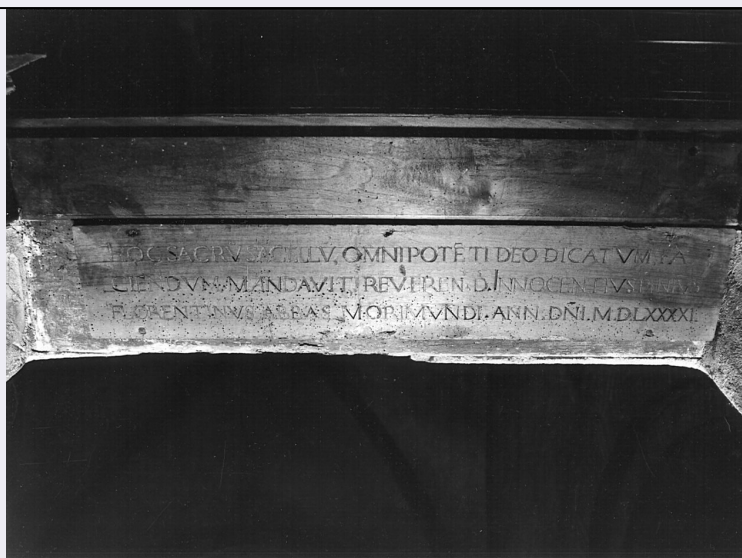 HOC SACRV SACELLV, OMNIPOTĒTI DEO DICATVM FA
CIENDVM MANDAVIT REVEREN. D. INNOCENTIVS
FLORENTINVS ABBAS MORIMVNDI. ANN. DNI. M. DLXXXXI.